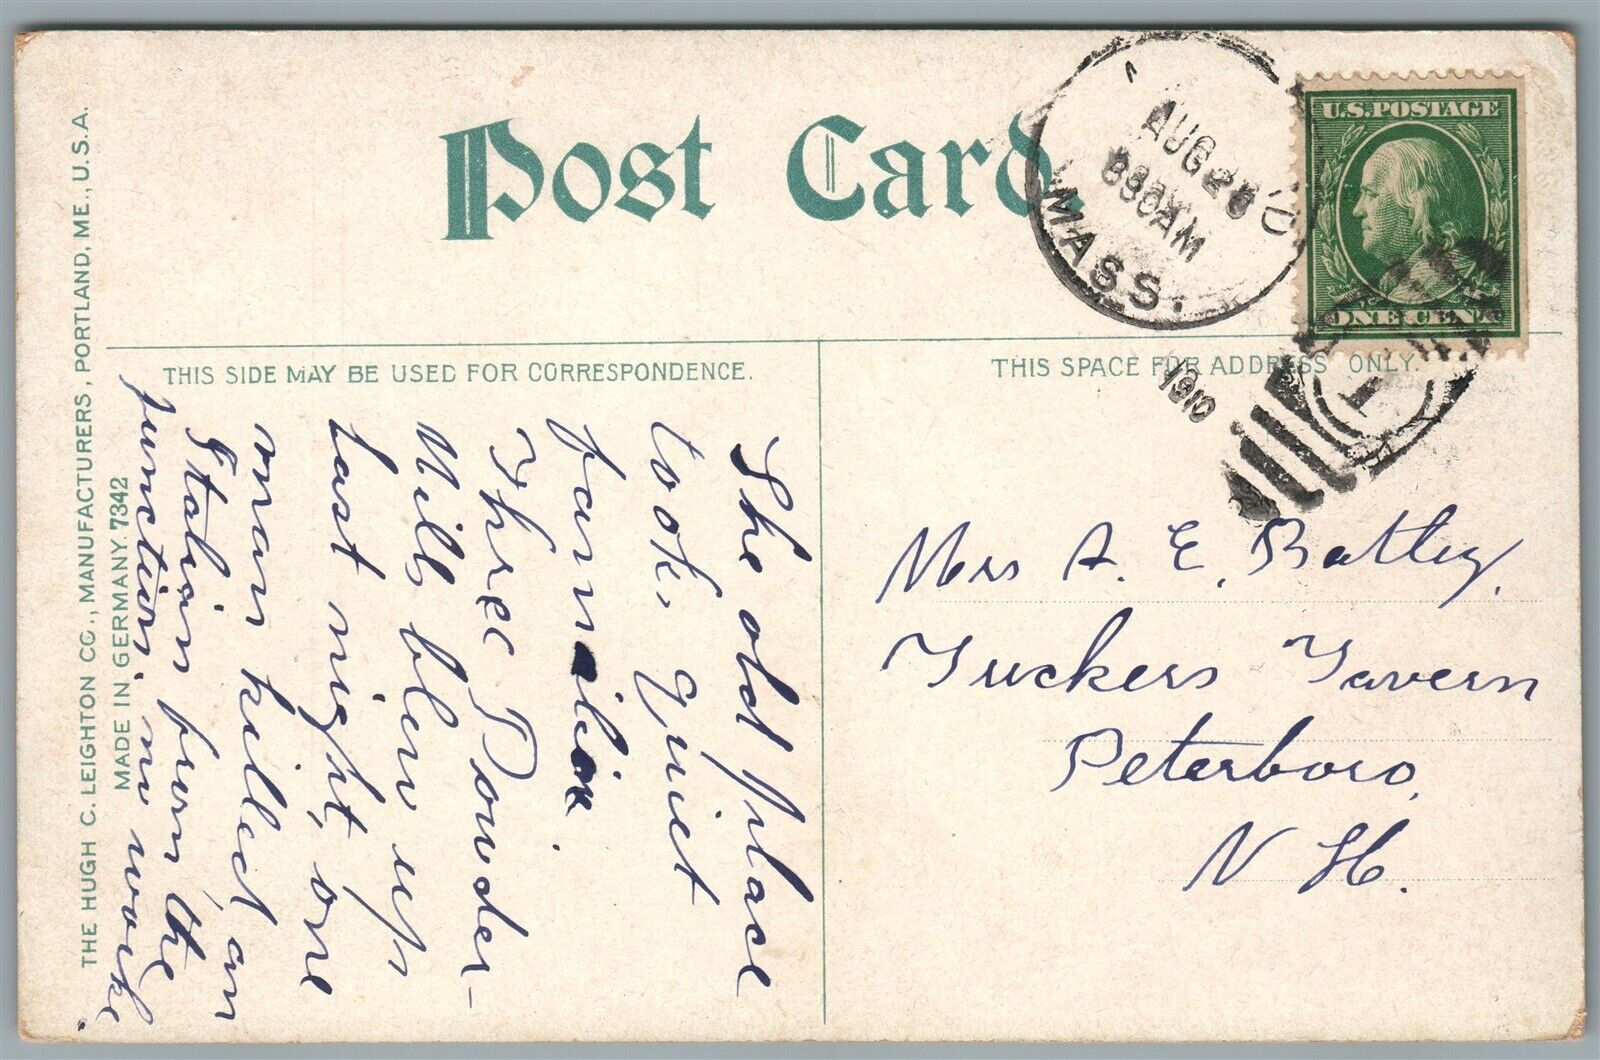 Post Card.
U.S. POSTAGE
ONE CENT
AUG 26
830AM
MASS.
1910
1
THIS SIDE MAY BE USED FOR CORRESPONDENCE.
THIS SPACE FOR ADDRESS ONLY.
The old place
look, quiet
familiar.
Three Powder-
Mills blew up
last night, one
man killed an
Italian from the
junction, no work.
Mrs A. E. Batley.
Tuckers Tavern
Peterboro,
N H.
THE HUGH C. LEIGHTON CO., MANUFACTURERS, PORTLAND, ME., U.S.A.
MADE IN GERMANY. 7342